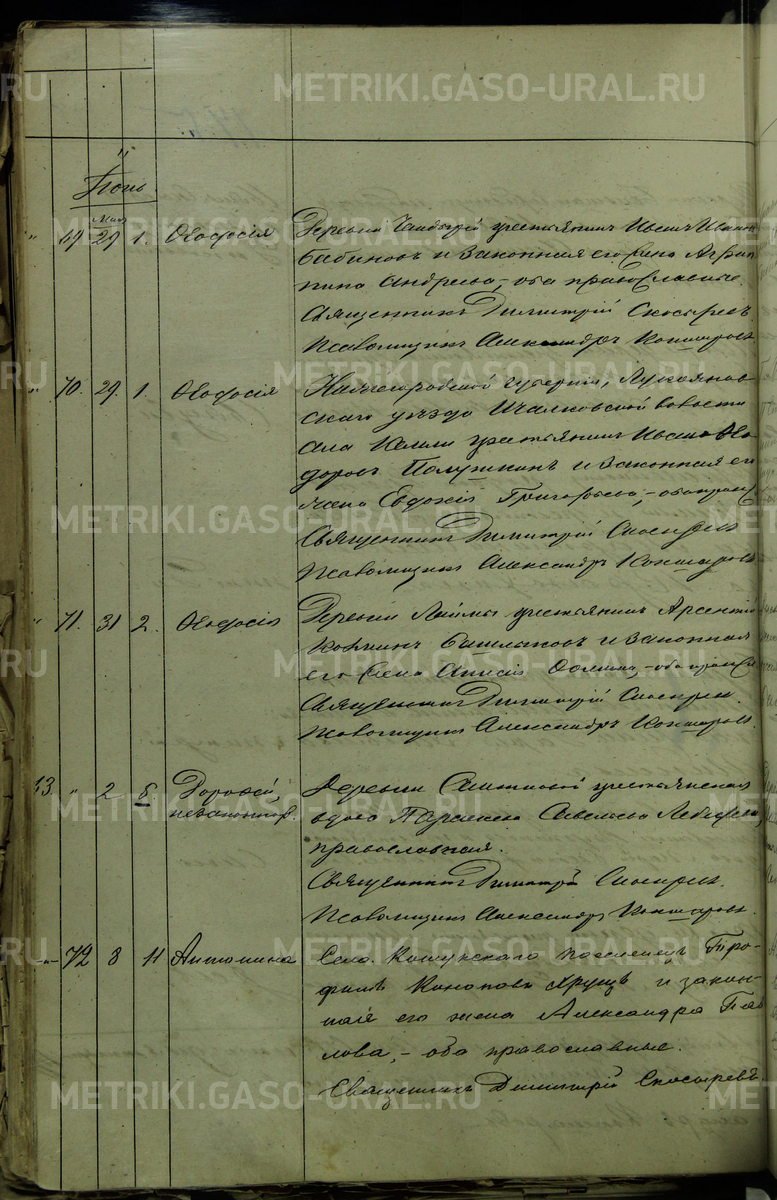 Іюнь
Мая
69 29 1. Ѳеодосія Деревни крестьянинъ Иванъ Иванов
Бабиновъ и законная его жена Агрип
пина Андреева, оба православные.
Священникъ Димитрій Скосыревъ
Псаломщикъ Александръ Кокшаровъ
70. 29. 1. Ѳеодосія Нижегородской губерніи, Лукоянов
скаго уѣзда Ичалковской волости
села Кемли крестьянинъ Иванъ Ѳео
доровъ Полушкинъ и законная его
жена Евдокія Григорьева, оба правос
Священникъ Димитрій Скосырев
Псаломщикъ Александръ Кокшаровъ
71. 31 2. Ѳеодосія Деревни крестьянинъ Арсентій
и законная
его жена Анисія оба правосл
Священникъ Димитрій Скосырев.
Псаломщикъ Александръ Кокшаровъ.
13. " 2 5. Дороѳей, незаконнор. Деревни крестьянская
вдова Параскева Савельева
православная.
Священникъ Димитрій Скосырев.
Псаломщикъ Александръ Кокшаровъ.
72 8 11 Антонина Села Кошукскаго поселенецъ Тро-
фимъ Кононовъ Хрущъ и закон-
ная его жена Александра Пав
лова, - оба православные.
Священникъ Димитрій Скосыревъ
METRIKI.GASO-URAL.RU